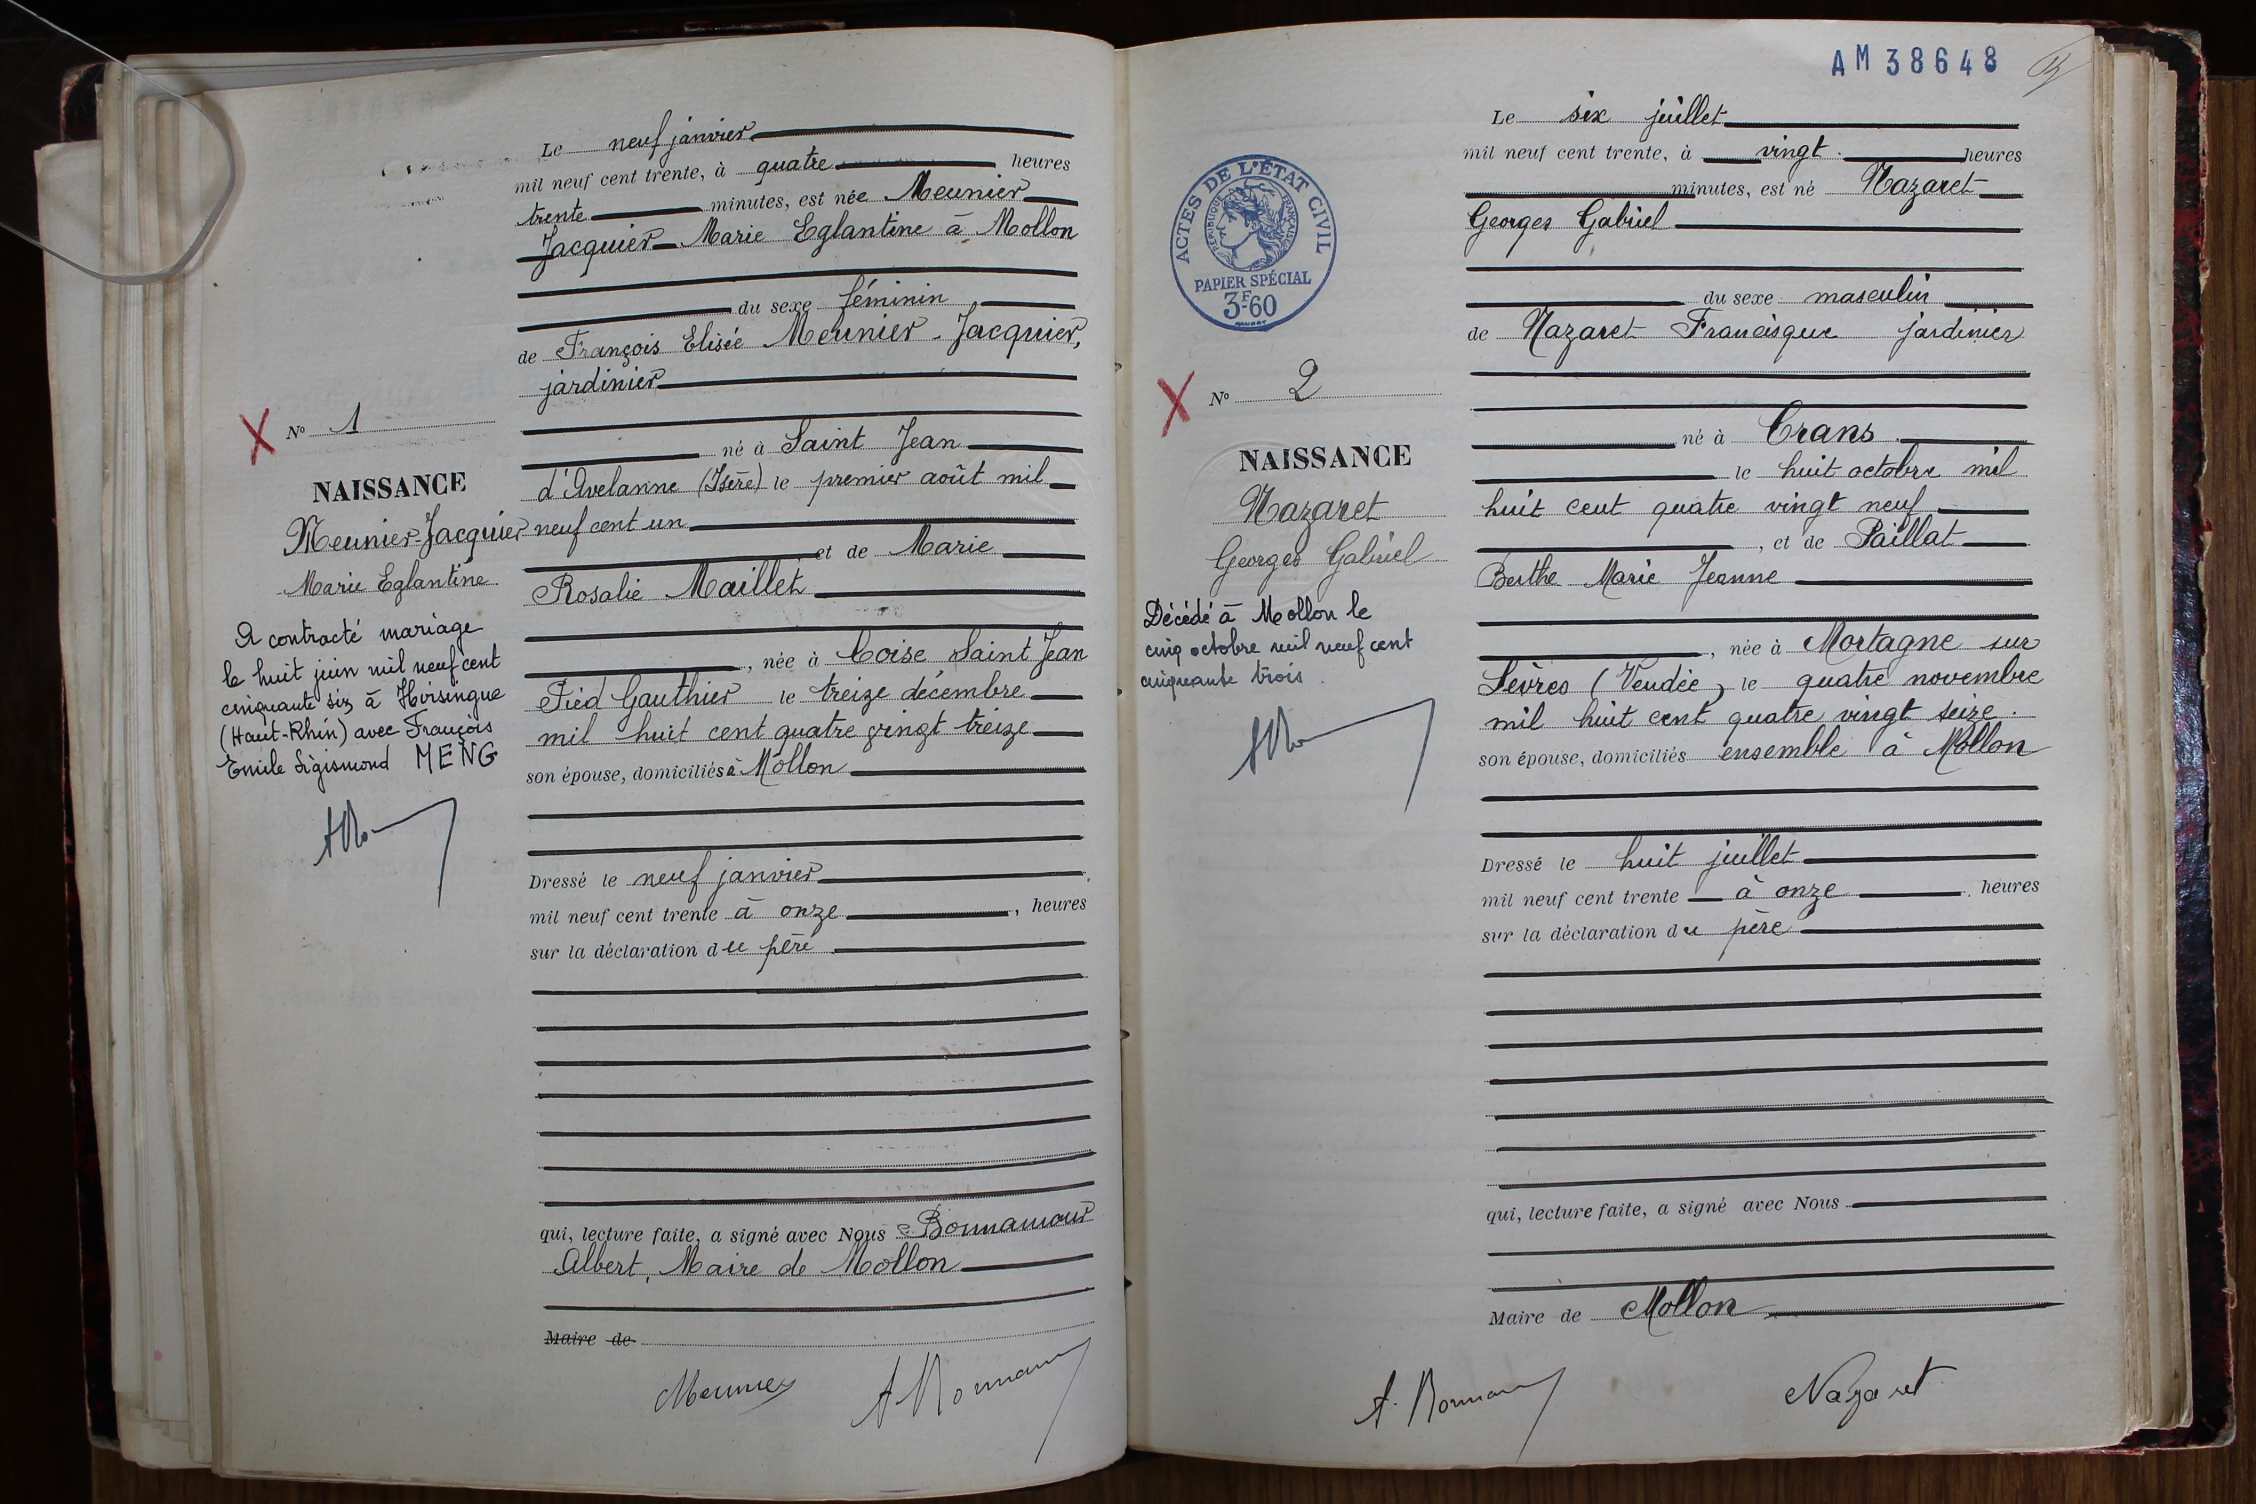 Le neuf janvier
mil neuf cent trente, à quatre heures
trente minutes, est née Meunier
Jacquier Marie Eglantine à Mollon
du sexe féminin
de François Elisée Meunier-Jacquier,
jardinier
né à Saint Jean
d'Avelanne (Isère) le premier août mil
neuf cent un
et de Marie
Rosalie Maillet
, née à Coise Saint Jean
Pied Gauthier le treize décembre
mil huit cent quatre vingt treize
son épouse, domiciliés à Mollon
Dressé le neuf janvier
mil neuf cent trente à onze, heures
sur la déclaration du père
qui, lecture faite, a signé avec Nous Bonnamour
Albert, Maire de Mollon
Maire de
Meunier A Bonnamour
N° 1
NAISSANCE
Meunier-Jacquier
Marie Eglantine
A contracté mariage
le huit juin mil neuf cent
cinquante six à Hirsingue
(Haut-Rhin) avec François
Emile Sigismond MENG
AM 38648
ACTES DE L'ÉTAT CIVIL
RÉPUBLIQUE FRANÇAISE
PAPIER SPÉCIAL
3F60
N° 2
NAISSANCE
Nazaret
Georges Gabriel
Décédé à Mollon le
cinq octobre mil neuf cent
cinquante trois.
Le six juillet
mil neuf cent trente, à vingt heures
minutes, est né Nazaret
Georges Gabriel
du sexe masculin
de Nazaret Francisque jardinier
né à Crans
le huit octobre mil
huit cent quatre vingt neuf
, et de Paillat
Berthe Marie Jeanne
, née à Mortagne sur
Sèvres (Vendée) le quatre novembre
mil huit cent quatre vingt seize.
son épouse, domiciliés ensemble à Mollon
Dressé le huit juillet
mil neuf cent trente à onze heures
sur la déclaration du père
qui, lecture faite, a signé avec Nous
Maire de Mollon
A. Bonnamour Nazaret